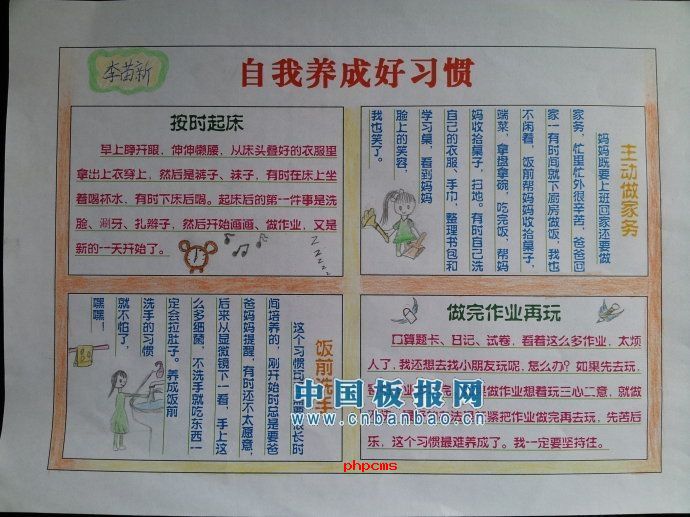 李苗新
自我养成好习惯
按时起床
早上睁开眼，伸伸懒腰，从床头叠好的衣服里
拿出上衣穿上，然后是裤子、袜子，有时在床上坐
着喝杯水，有时下床后喝。起床后的第一件事是洗
脸、涮牙、扎辫子，然后开始画画、做作业，又是
新的一天开始了。
主动做家务
妈妈既要上班回家还要做
家务，忙里忙外很辛苦，爸爸回
家一有时间就下厨房做饭，我也
不闲着，饭前帮妈妈收拾桌子，
端菜，拿盘拿碗，吃完饭，帮妈
妈收拾桌子，扫地。有时自己洗
自己的衣服、手巾，整理书包和
学习桌，看到妈妈
脸上的笑容，
我也笑了。
饭前洗手
这个习惯可
很长时
间培养的，刚开始时总是要爸
爸妈妈提醒，有时还不太愿意，
后来从显微镜下一看，手上这
么多细菌，不洗手就吃东西一
定会拉肚子。养成饭前
洗手的习惯
就不怕了，
嘿嘿！
做完作业再玩
口算题卡、日记、试卷，看着这么多作业，太烦
人了，我还想去找小朋友玩呢，怎么办？如果先去玩，
做作业想着玩三心二意，就做
紧把作业做完再去玩，先苦后
乐，这个习惯最难养成了。我一定要坚持住。
中国板报网
www.cnbanbao.cn
phpcms